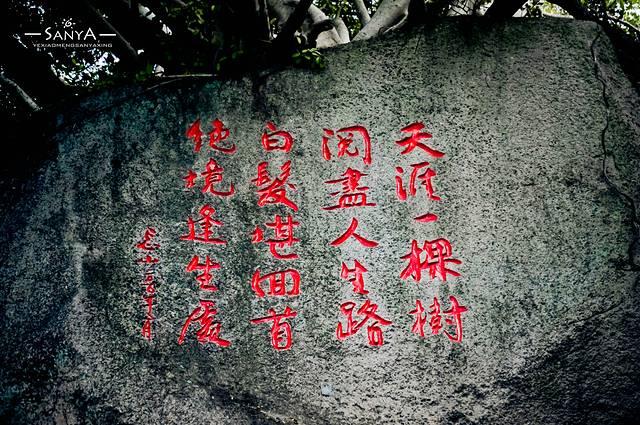 SANYA
YEXIAOMENGSANYAXING
天涯一棵樹
閱盡人生路
白髮堪回首
絶境逢生處